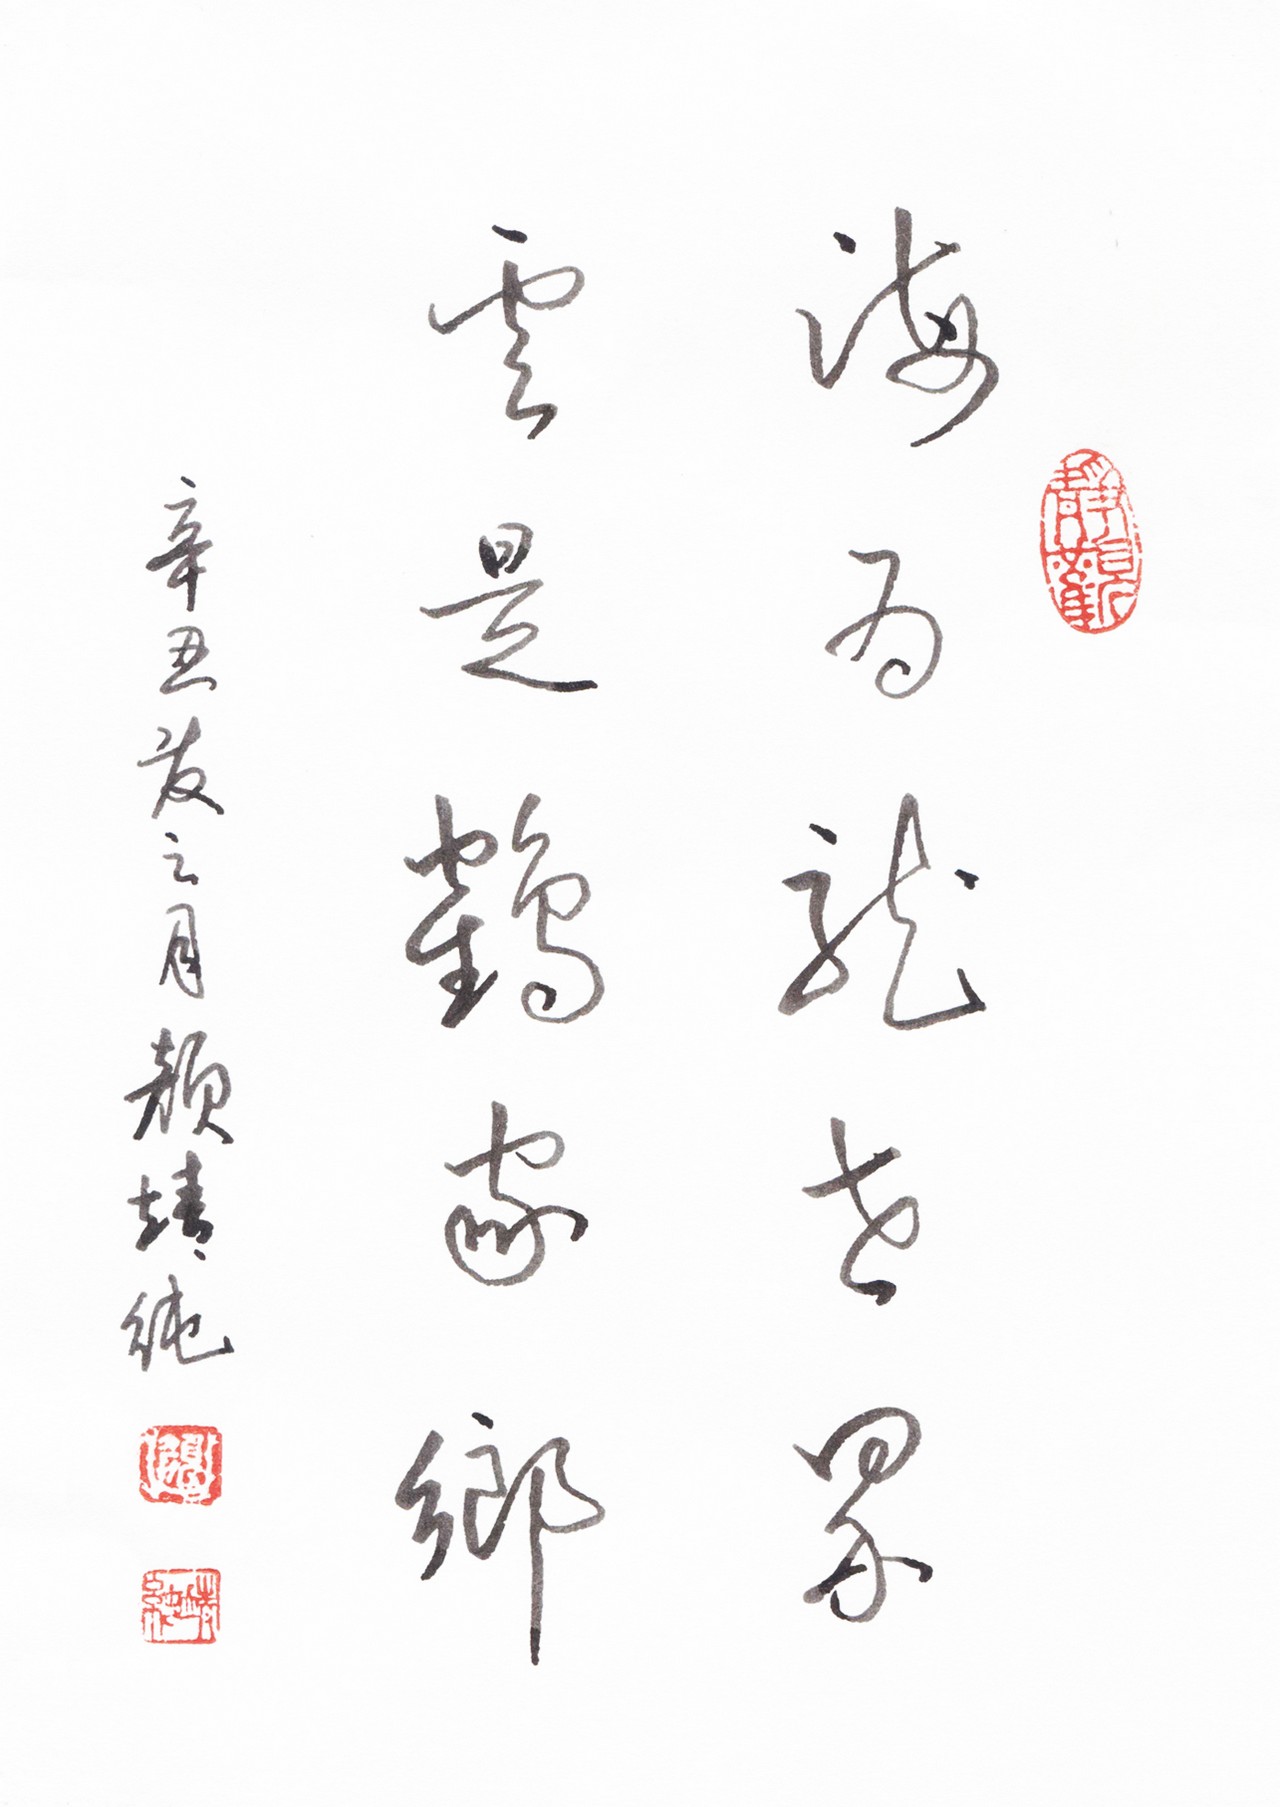 海為龍世界
雲是鶴家鄉
辛丑荻之月顏靖純